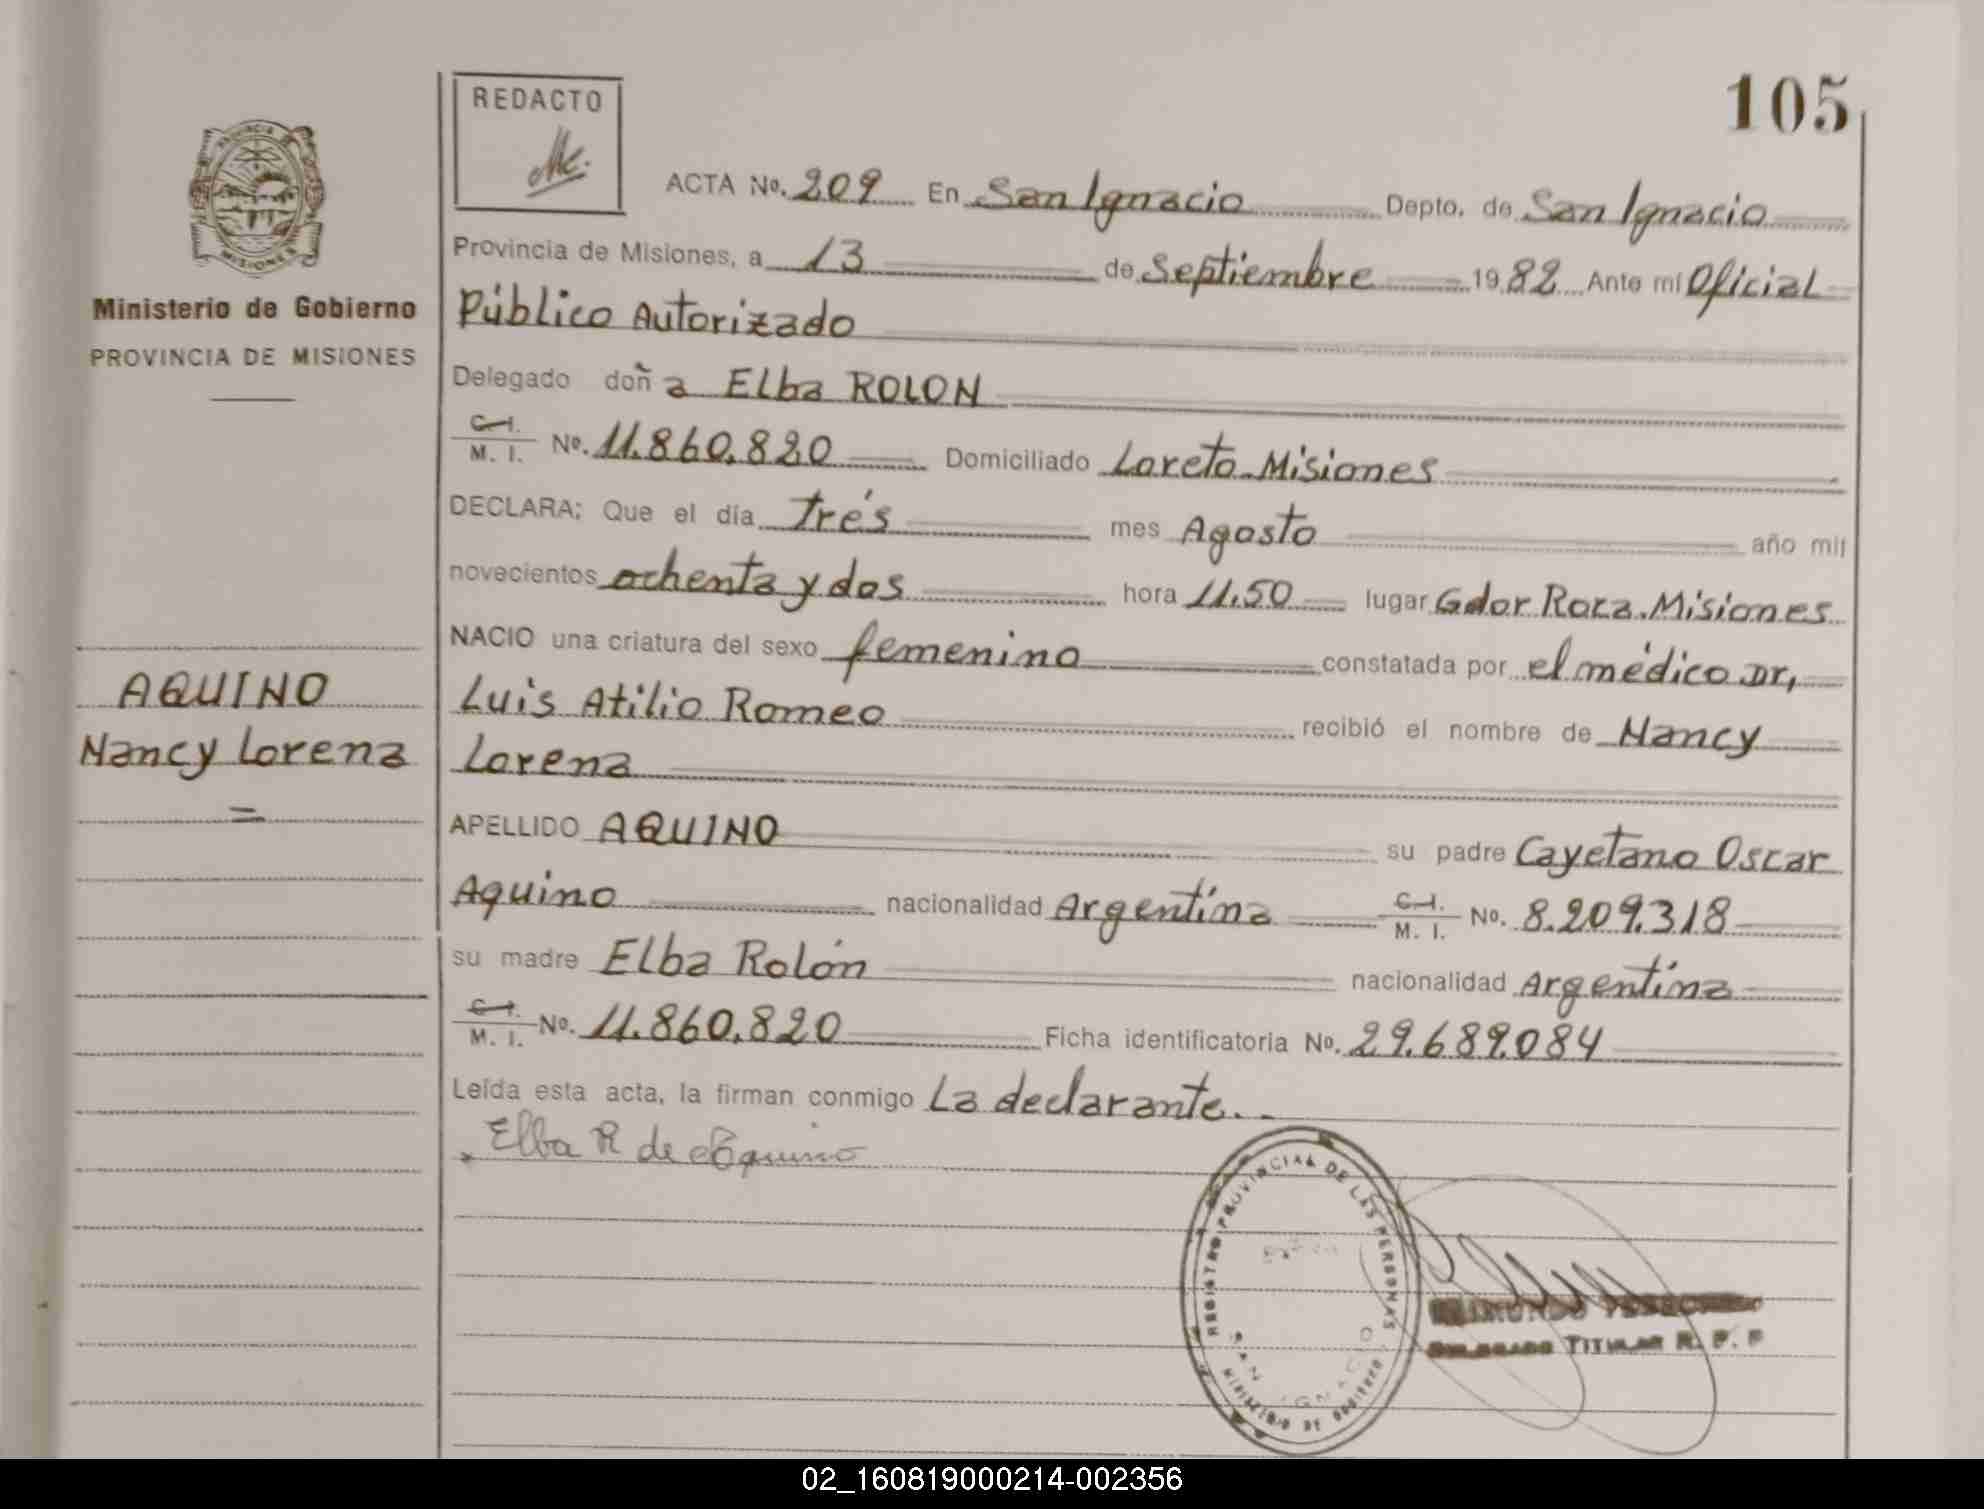 105
REDACTO
PROVINCIA DE
MISIONES
Ministerio de Gobierno
PROVINCIA DE MISIONES
AQUINO
Nancy Lorena
=
ACTA No. 209 En San Ignacio Depto. de San Ignacio
Provincia de Misiones, a 13 de Septiembre 1982 Ante mí Oficial
Público Autorizado
Delegado doña Elba ROLON
C.I. M. I. No. 11.860.820 Domiciliado Loreto-Misiones
DECLARA: Que el día Trés mes Agosto año mil
novecientos ochenta y dos hora 11.50 lugar Gdor Roca.Misiones
NACIO una criatura del sexo femenino constatada por el médico Dr,
Luis Atilio Romeo recibió el nombre de Nancy
Lorena
APELLIDO AQUINO su padre Cayetano Oscar
Aquino nacionalidad Argentína C.I. M. I. No. 8.209.318
su madre Elba Rolón nacionalidad Argentína
C.I. M. I. No. 11.860.820 Ficha identificatoria No. 29.689.084
Leída esta acta, la firman conmigo La declarante.-
Elba R de Aquino
REGISTRO PROVINCIAL DE LAS PERSONAS
SAN IGNACIO
MINISTERIO DE GOBIERNO
DELEGADO TITULAR R. P. P
02_160819000214-002356